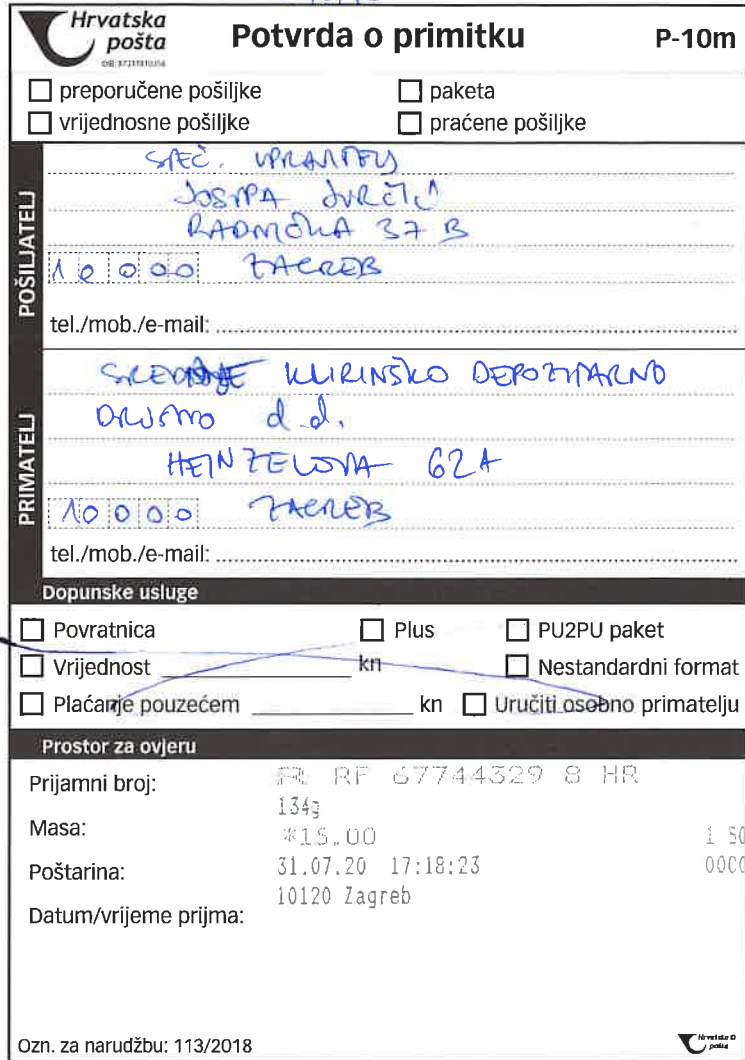 Hrvatska
pošta
Potvrda o primitku
P-10m
preporučene pošiljke
paketa
vrijednosne pošiljke
praćene pošiljke
POŠILJATELJ
SPEC. UPRAVITELJ
JOSIPA JURČIĆ
37 B
10000 ZAGREB
tel./mob./e-mail:
PRIMATELJ
SREDIŠNJE KLIRINŠKO DEPOZITARNO
DRUŠTVO d.d.
HEINZELOVA 62A
10000 ZAGREB
tel./mob./e-mail:
Dopunske usluge
Povratnica
Plus
PU2PU paket
Vrijednost kn
Nestandardni format
Plaćanje pouzećem kn
Uručiti osobno primatelju
Prostor za ovjeru
Prijamni broj: RF 67744329 8 HR
Masa: 134g
*15.00
Poštarina:
31.07.20 17:18:23
Datum/vrijeme prijma:
10120 Zagreb
Ozn. za narudžbu: 113/2018
Hrvatska
pošta